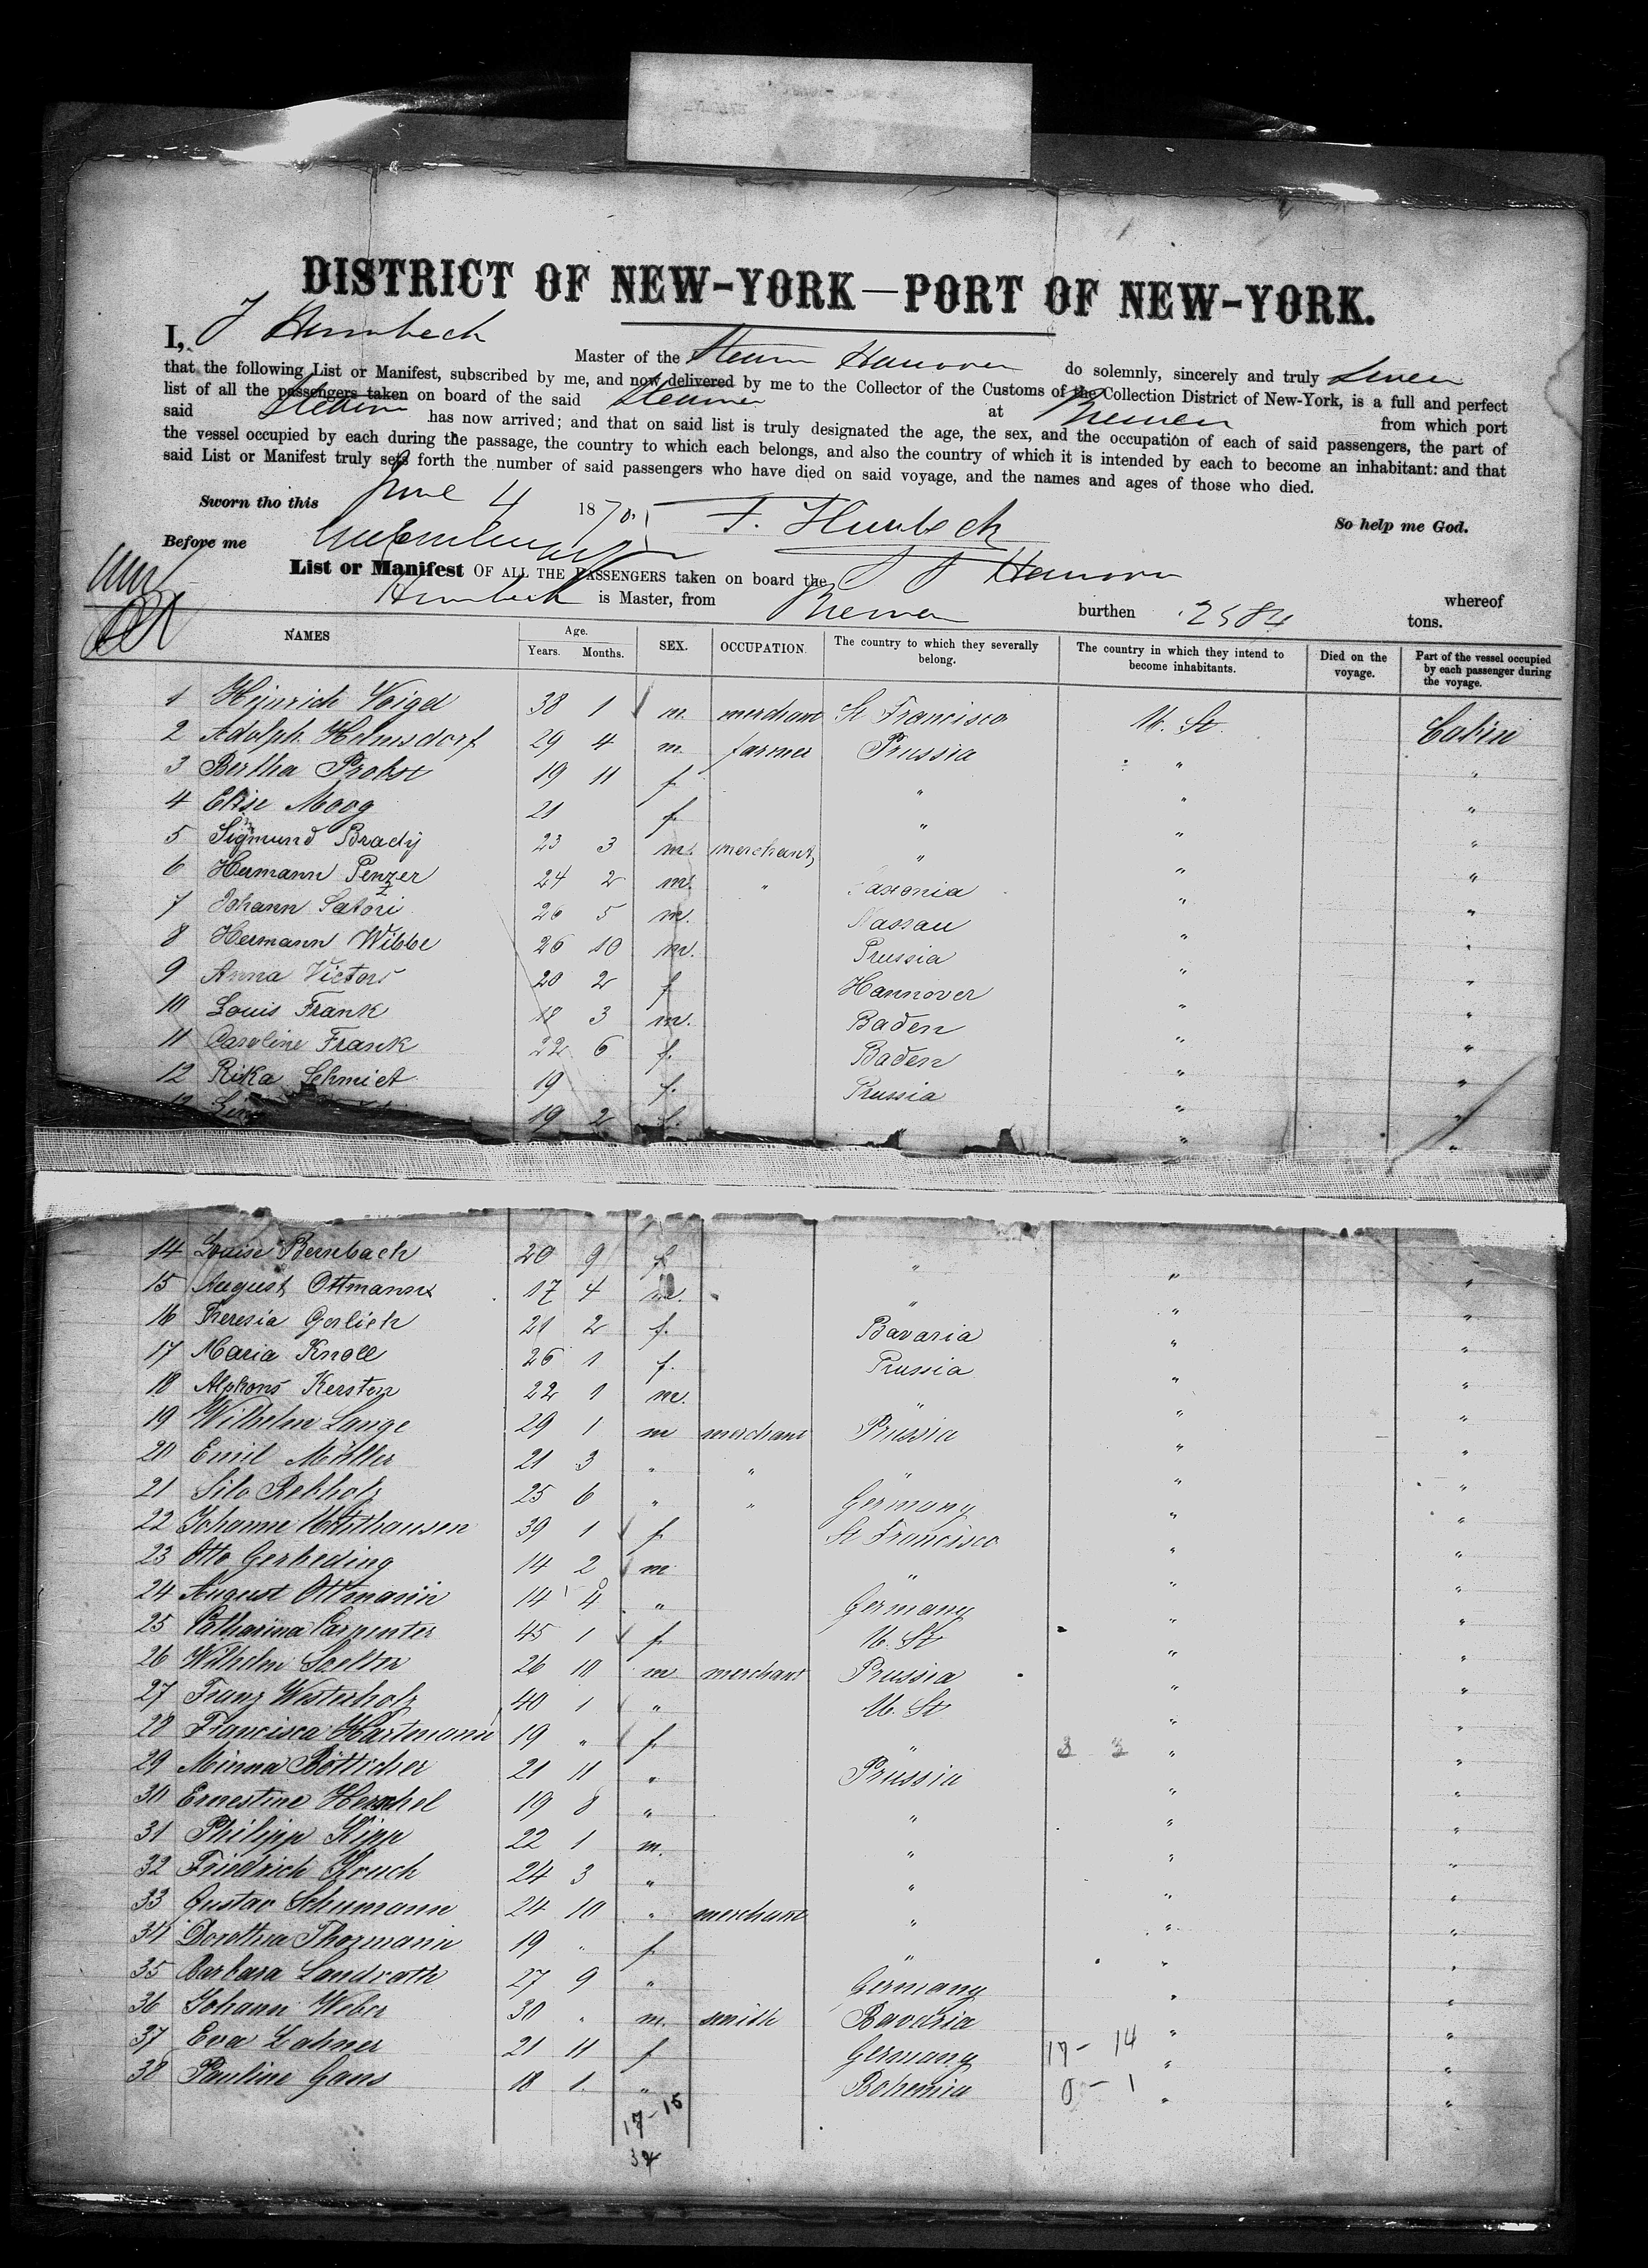 DISTRICT OF NEW-YORK—PORT OF NEW-YORK.
I, F Himbech Master of the Steam Hanover do solemnly, sincerely and truly swear
that the following List or Manifest, subscribed by me, and now delivered by me to the Collector of the Customs of the Collection District of New-York, is a full and perfect
list of all the passengers taken on board of the said Steamer at Bremen from which port
said Steam has now arrived; and that on said list is truly designated the age, the sex, and the occupation of each of said passengers, the part of
the vessel occupied by each during the passage, the country to which each belongs, and also the country of which it is intended by each to become an inhabitant: and that
said List or Manifest truly sets forth the number of said passengers who have died on said voyage, and the names and ages of those who died.
Sworn tho this June 4 1870 F. Himbech So help me God.
Before me
List or Manifest OF ALL THE PASSENGERS taken on board the S S Hanover whereof
Himbech is Master, from Bremen burthen 2584 tons.
NAMES Age. Years. Months. SEX. OCCUPATION. The country to which they severally belong. The country in which they intend to become inhabitants. Died on the voyage. Part of the vessel occupied by each passenger during the voyage.
1 Heinrich Voigd 38 1 m. merchant St Francisco U. St. Cabin
2 Adolph Helmsdorf 29 4 m. farmer Prussia " "
3 Bertha Probst 19 11 f. " " "
4 Elise Moog 21 f. " " "
5 Sigmund Brady 23 3 m. merchant, " " "
6 Hermann Penzer 24 2 m. " Saxonia " "
7 Johann Satori 26 5 m. Nassau " "
8 Hermann Wibbe 26 10 m. Prussia " "
9 Anna Victors 20 2 f Hannover " "
10 Louis Frank 18 3 m. Baden " "
11 Caroline Frank 22 6 f. Baden " "
12 Rika Schmidt 19 f. Prussia " "
13 19 2 f. " "
14 Louise Bernbach 20 9 f " " "
15 August Ottmann 17 4 m. " " "
16 Theresia Gerlich 21 2 f. Bavaria " "
17 Maria Knoll 26 1 f. Prussia " "
18 Alphons Kersten 22 1 m. " " "
19 Wilhelm Lange 29 1 m merchant Prussia " "
20 Emil Möller 21 3 " " " " "
21 Silo Rebholz 25 6 " " Germany " "
22 Johanne 39 1 f St Francisco " "
23 Otto Gerheding 14 2 m " " "
24 August Ottmann 14 4 " Germany " "
25 Catharina Carpenter 45 1 f U. St " "
26 Wilhelm Szelter 26 10 m merchant Prussia " "
27 Franz Westerholz 40 1 " U. St " "
28 Francisca Hartmann 19 " f " 3 3 " "
29 Minna Böttcher 21 11 " Prussia " "
30 Ernestine Herschel 19 8 " " " "
31 Philipp Kipp 22 1 m. " " "
32 Friedrich Kruch 24 3 " " " "
33 Gustav Schumann 24 10 " merchant " " "
34 Dorothea Thozmann 19 " f " " "
35 Barbara Landrath 27 9 " Germany " "
36 Johann Weber 30 " m. smith Bavaria " "
37 Eva Lahner 21 11 f Germany 17 - 14 " "
38 Pauline Gans 18 1 " Bohemia 0 - 1 " "
17-15
32